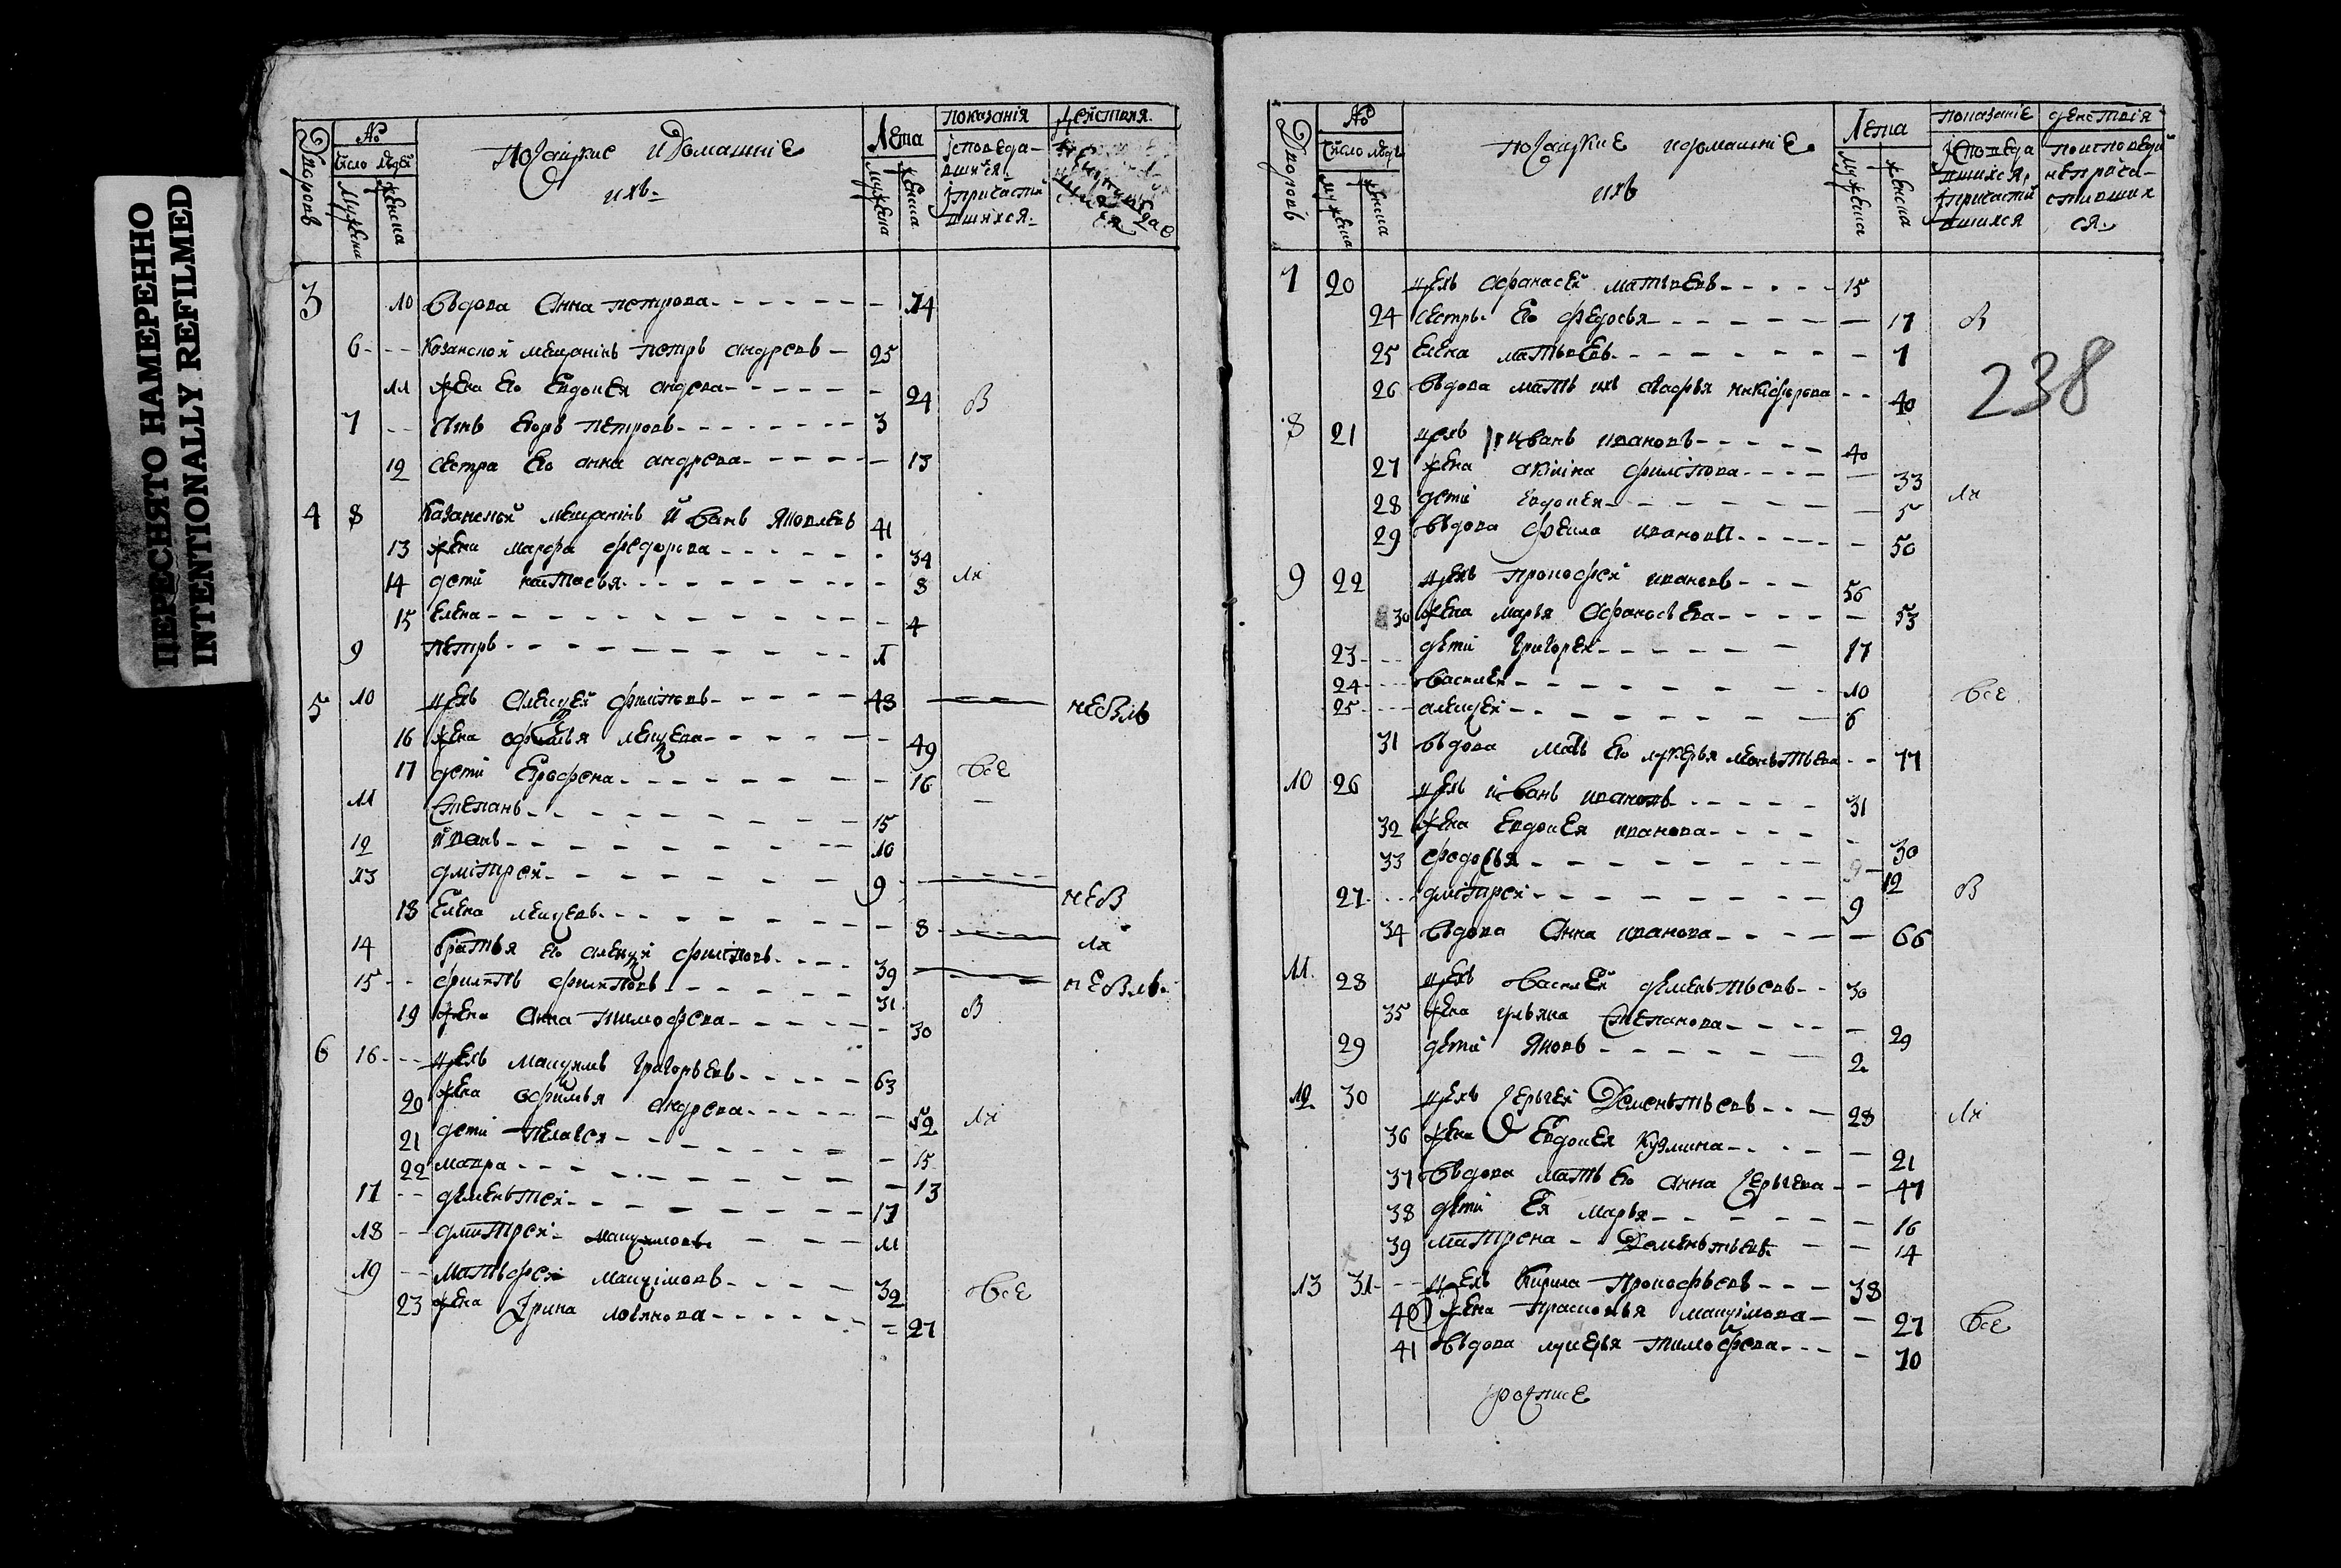 ПЕРЕСНЯТО НАМЕРЕННО
INTENTIONALLY REFILMED
Дворовъ
№
Число людей
Мужеска
Женска
Посацкие и домашніе
ихъ
Лета
Мужеска
Женска
показанія
їсповеда-
вшихся
їпричасти
вшихся
действия
3 10 вдова Анна петрова 74
6 Казанской мещанинъ петръ андреевъ 25
11 жена его Евдокея андреева 24 В
7 сынъ Егоръ петровъ 3
12 сестра его анна андреева 13
4 8 Казанской мещанинъ Иванъ Яковлевъ 41
13 жена марфа федорова 34
14 дети настасья 8
15 Елена 4
9 петръ 1
5 10 цехъ Алексей филіповъ 48
16 жена 49
17 дети Ерофена 16 все
11 Степанъ 15
12 Иванъ 10
13 дмітрей 9
18 Елена 8
14 братья его алексей филіповъ 39
15 филипъ филиповъ 31
19 жена Анна тимофеева 30 В
6 16 цехъ Максимъ григорьевъ 63
20 жена офимья андреева 52
21 дети пелагея 15
22 мавра 13
17 дементей 17
18 дмитрей максимовъ 11
19 Матфей максімовъ 32 все
23 жена Ірина 27
Дворовъ
№
Число людей
Мужеска
Женска
посацкие и домашние
ихъ
Лета
Мужеска
Женска
показаніе
їсповеда
вшихся
їпричасти
вшихся
действія
поисповеди
непричa-
стивших
ся
7 20 цехъ Афанасей матвеевъ 15
24 сестры его федосья 17 В
25 Елена матвеевы 7
238
26 вдова мать ихъ никіфорова 40
8 21 цехъ Иванъ ивановъ 40
27 жена акілина філіпова 33
28 дети евдокея 5
29 вдова иванова 50
9 22 цехъ прокофей ивановъ 56
30 жена марья Афанасьева 53
23 дети григорей 17
24 василей 10 все
25 алексей 6
31 вдова мать его лукерья 77
10 26 цехъ иванъ ивановъ 31
32 жена Евдокея иванова 30
33 федосья 12 В
27 дмітрей 9
34 вдова Анна иванова 66
11 28 цехъ василей дементьевъ 30
35 жена ульяна Степанова 29
29 дети Яковъ 2
12 30 цехъ Сергей Дементьевъ 28
36 жена Евдокея кузмина 21
37 вдова мать его анна Сергеева 47
38 дети Ея марья 16
39 матрена Дементьевы 14
13 31 цехъ кирила прокофьевъ 38
40 жена прасковья максімова 27 все
41 вдова лукерья тимофеева 70